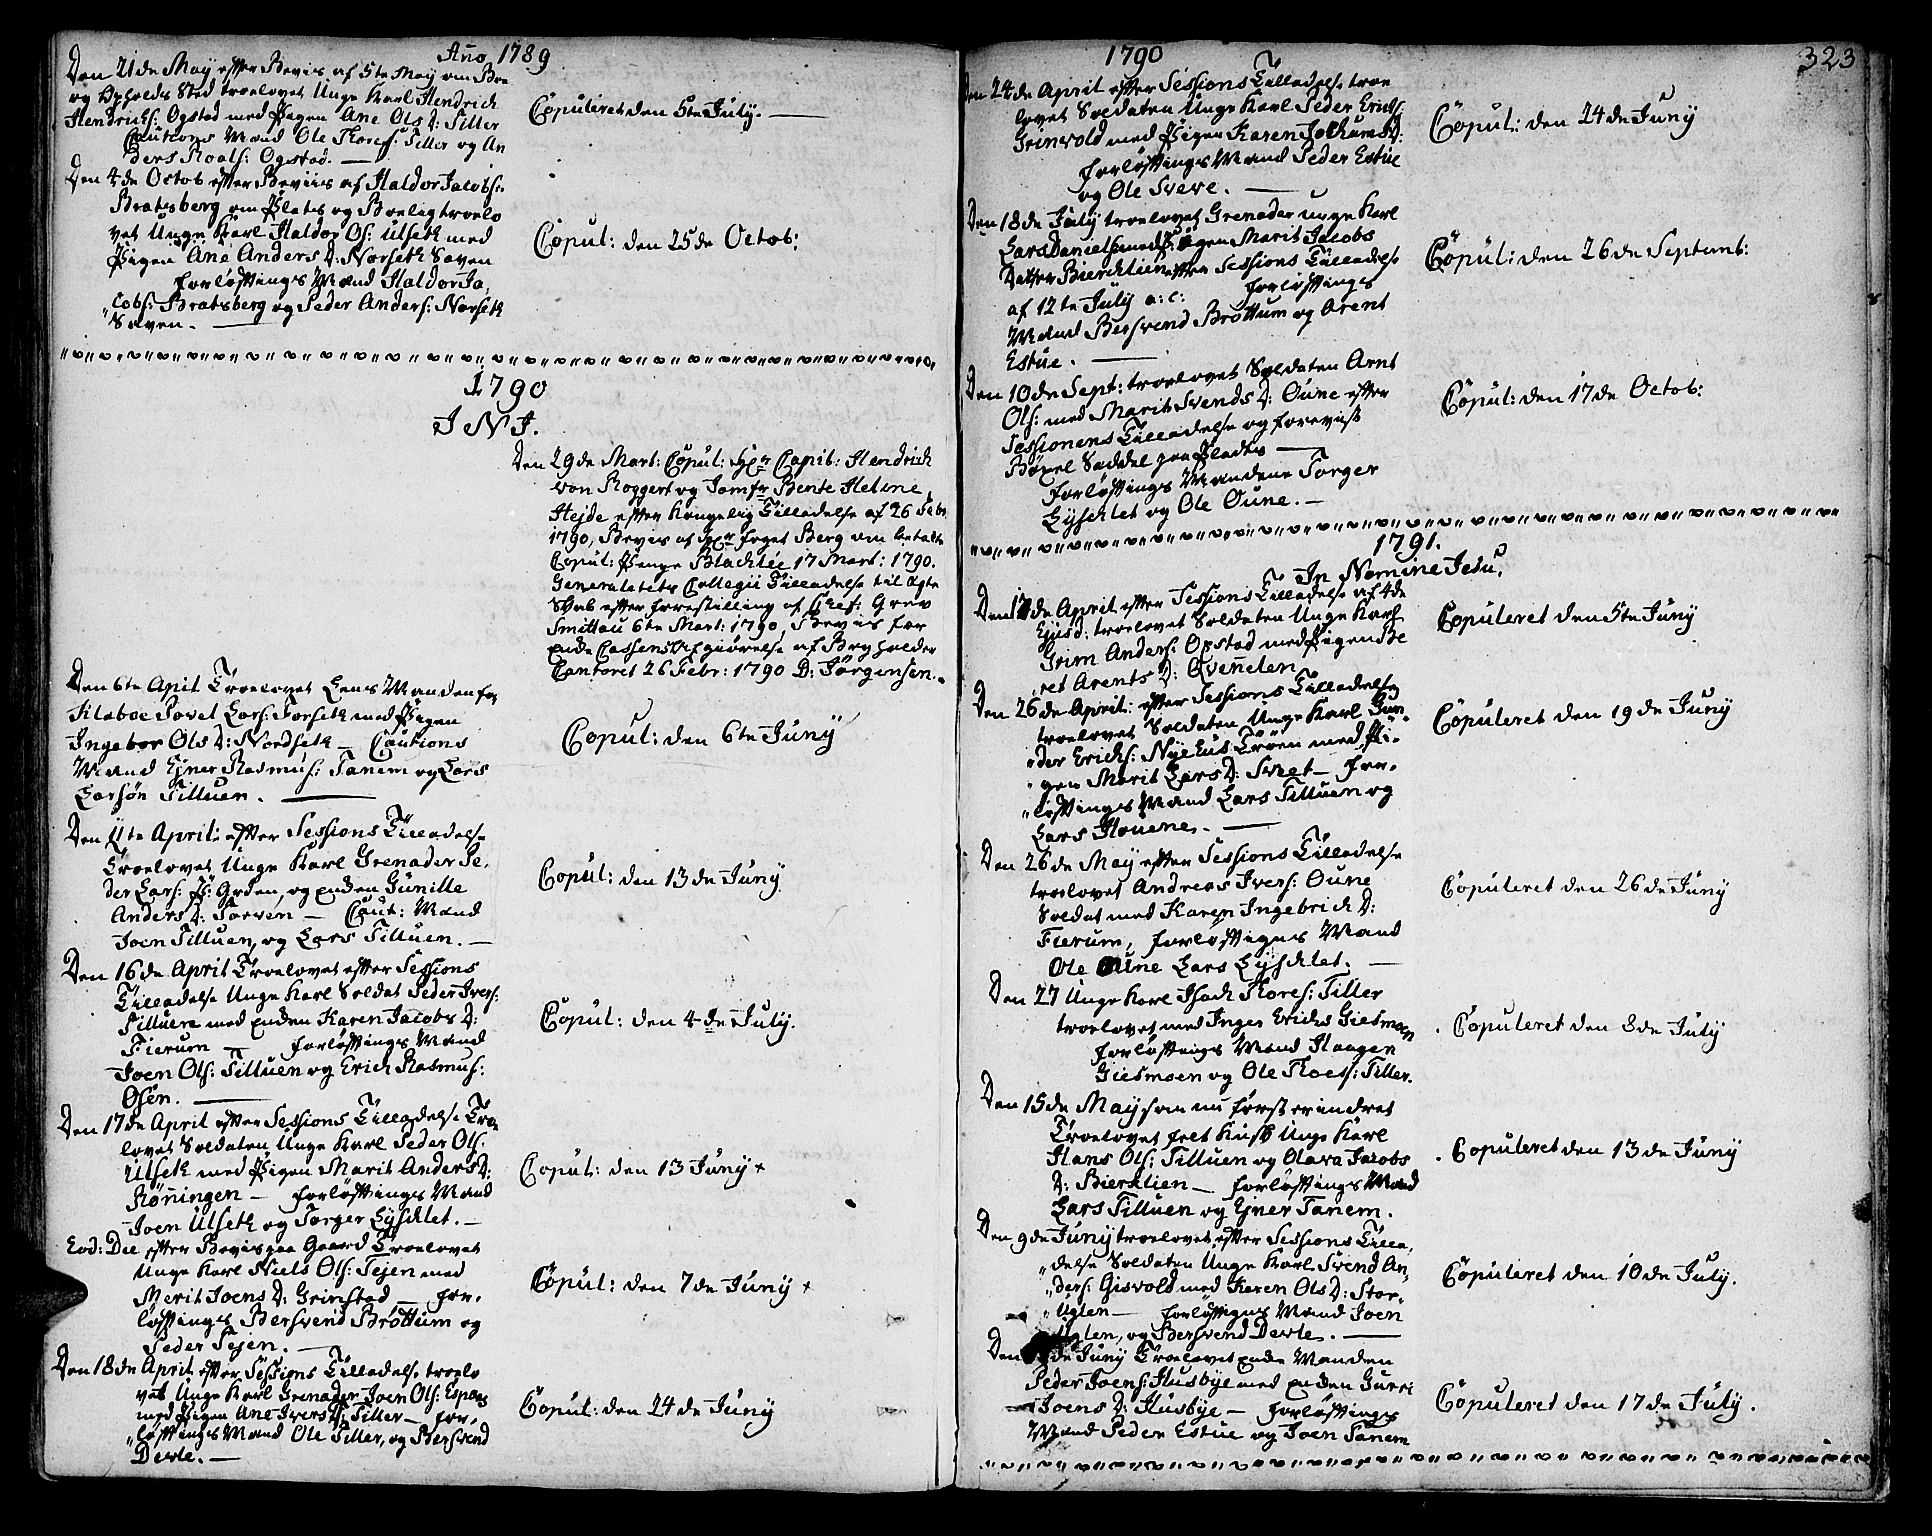 Año 1789
Den 21de May efter Bevis af 5te May om Boe
og Opholds Sted troelovet Unge Karl Hendrich
Hendrichs: Ogstad med Pigen Ane Ols D: Tiller
Cautions Mænd Ole Thores: Tiller og An
ders Roals: Ogstad.
Copuleret den 5te July.
Den 4de Octob efter Beviis af Haldor Jacobs:
Bratsberg om Plads og Boelig troelo
vet Unge Karl Haldor Ols: Ulseth med
Pigen Ane Anders D: Norseth Saven
forløftings Mænd Haldor Ja,
cobs: Bratsberg og Peder Anders: Norseth
Saven.
Copul: den 25de Octob:
1790
I N J.
Den 29de Mart: Copul: Hr Capit: Hendrich
von Roggert og Jomfr Bente Helene
Hejde efter Kongelig Tilladelse af 26 Febr
1790, Bevis af Hr Foget Berg om betalte
Copul: Penge Bladhlie 17 Mart: 1790.
Generalitets Collegii Tilladelse til Ægte
Skab efter forestilling af Chef: Grev
Smittau 6te Mart: 1790, Bevis for
Enke Cassens Afgiørelse af Bogholder
Contoret 26 Febr: 1790 D: Jørgensen.
Den 6te April Troelovet Lens Manden for
Klæboe Povel Lars: Forseth med Pigen
Ingebor Ols D: Nordseth Cautions
Mænd Ejner Rasmus: Tanem og Lars
Larsøn Tilluen.
Copul: den 6te Juny
Den 11te April: efter Sessions Tilladelse
Troelovet Unge Karl Grenader Pe,
der Lars: Gr den, og Enken Gunille
Anders D: Sorven Caut: Mænd
Joen Tilluen, og Lars Tilluen.
Copul: den 13de Juny
Den 16de April Troelovet efter Sessions
Tilladelse Unge Karl Soldat Peder Ivers:
Tilluen med Enken Karen Jacobs D:
Fierum forløftings Mænd
Joen Ols: Tilluen og Erich Rasmus:
Osen.
Copul: den 4de July.
Den 17de April efter Sessions Tilladelse Troe
lovet Soldaten Unge Karl Peder Ols:
Ulseth med Pigen Marit Anders D:
Røningen forløftings Mænd
Joen Ulseth og Torger Lysklet.
Copul: den 13 Juny +
Eod: Die efter Bevis paa Gaard Troelovet
Unge Karl Niels Ols: Tejen med
Merit Joens D: Grinstad for,
løftings Bersvend Brøttum og
Peder Tejen.
Copul: den 7de Juny +
Den 18de April efter Sessions Tilladelse troelo
vet Unge Karl Grenader Joen Ols: Espaas
med Pigen Ane Ivers D: Tiller for,
løftings Mænd Ole Tiller, og Bersvend
Devle.
Copul: den 24de Juny
1790
323
Den 24de April efter Sessions Tilladelse troe
lovet Soldaten Unge Karl Peder Erichs:
Grinvold med Pigen Karen Jochums D:
forløftings Mænd Peder Estue
og Ole Svere.
Copul: den 24de Juny
Den 18de July troelovet Grenader unge Karl
Lars Daniels: med Pigen Marit Jacobs
Datter Bierchlien efter Sessions Tilladelse
af 12te July a: c: forløftings
Mænd Bersvend Brøttum og Arent
Estue.
Copul: den 26de Septemb:
Den 10de Sept: troelovet Soldaten Arnt
Ols: med Marit Svends D: Oune efter
Sessionens Tilladelse og forevist
Bøxel Seddel paa Plads
forløftings Mændene Torger
Lysklet og Ole Oune.
Copul: den 17de Octob:
1791.
In Nomine Jesu.
Den 17de April efter Sessions Tilladelse af 4de
Ejusd: troelovet Soldaten Unge Karl
Grim Anders: Opstad med Pigen Be
ret Arents D: Qvenelen
Copuleret den 5te Juny
Den 26de April: efter Sessions Tilladelse
troelovet Soldaten Unge Karl Gun,
der Erichs: Nyehus Trøen med Pi,
gen Marit Lars D: Sveet for,
løftings Mænd Lars Tilluen og
Lars Houene.
Copuleret den 19de Juny
Den 26de May efter Sessions Tilladelse
troelovet Andreas Ivers: Oune
Soldat med Karen Ingebrich D:
Fierum, forløftigns Mænd
Ole Oune Lars Lysklet.
Copuleret den 26de Juny
Den 27 Unge Karl Isach Thores: Tiller
troelovet med Inger Erichs Giesmoen
forløftnigs Mænd Haagen
Giesmoen og Ole Thoes: Tiller.
Copuleret den 8de July
Den 15de May som nu først erindret
Troelovet frel Husb Unge Karl
Hans Ols: Tilluen og Olava Jacobs
D: Bierchlien forløftings Mænd
Lars Tilluen og Ejner Tanem.
Copuleret den 13de Juny
Den 9de Juny troelovet efter Sessions Tilla,
delse Soldaten Unge Karl Svend An,
ders: Gisvold med Karen Ols D: Stor,
Uglen forløftigns Mænd Joen
Uglen, og Bersvend Devle.
Copuleret den 10de July.
Den de Juny Troelovet Enke Manden
Peder Joens: Husbye med Enken Gurri
Joens D: Husbye forløftings
Mænd Peder Estue og Joen Tanem
Copuleret den 17de July.